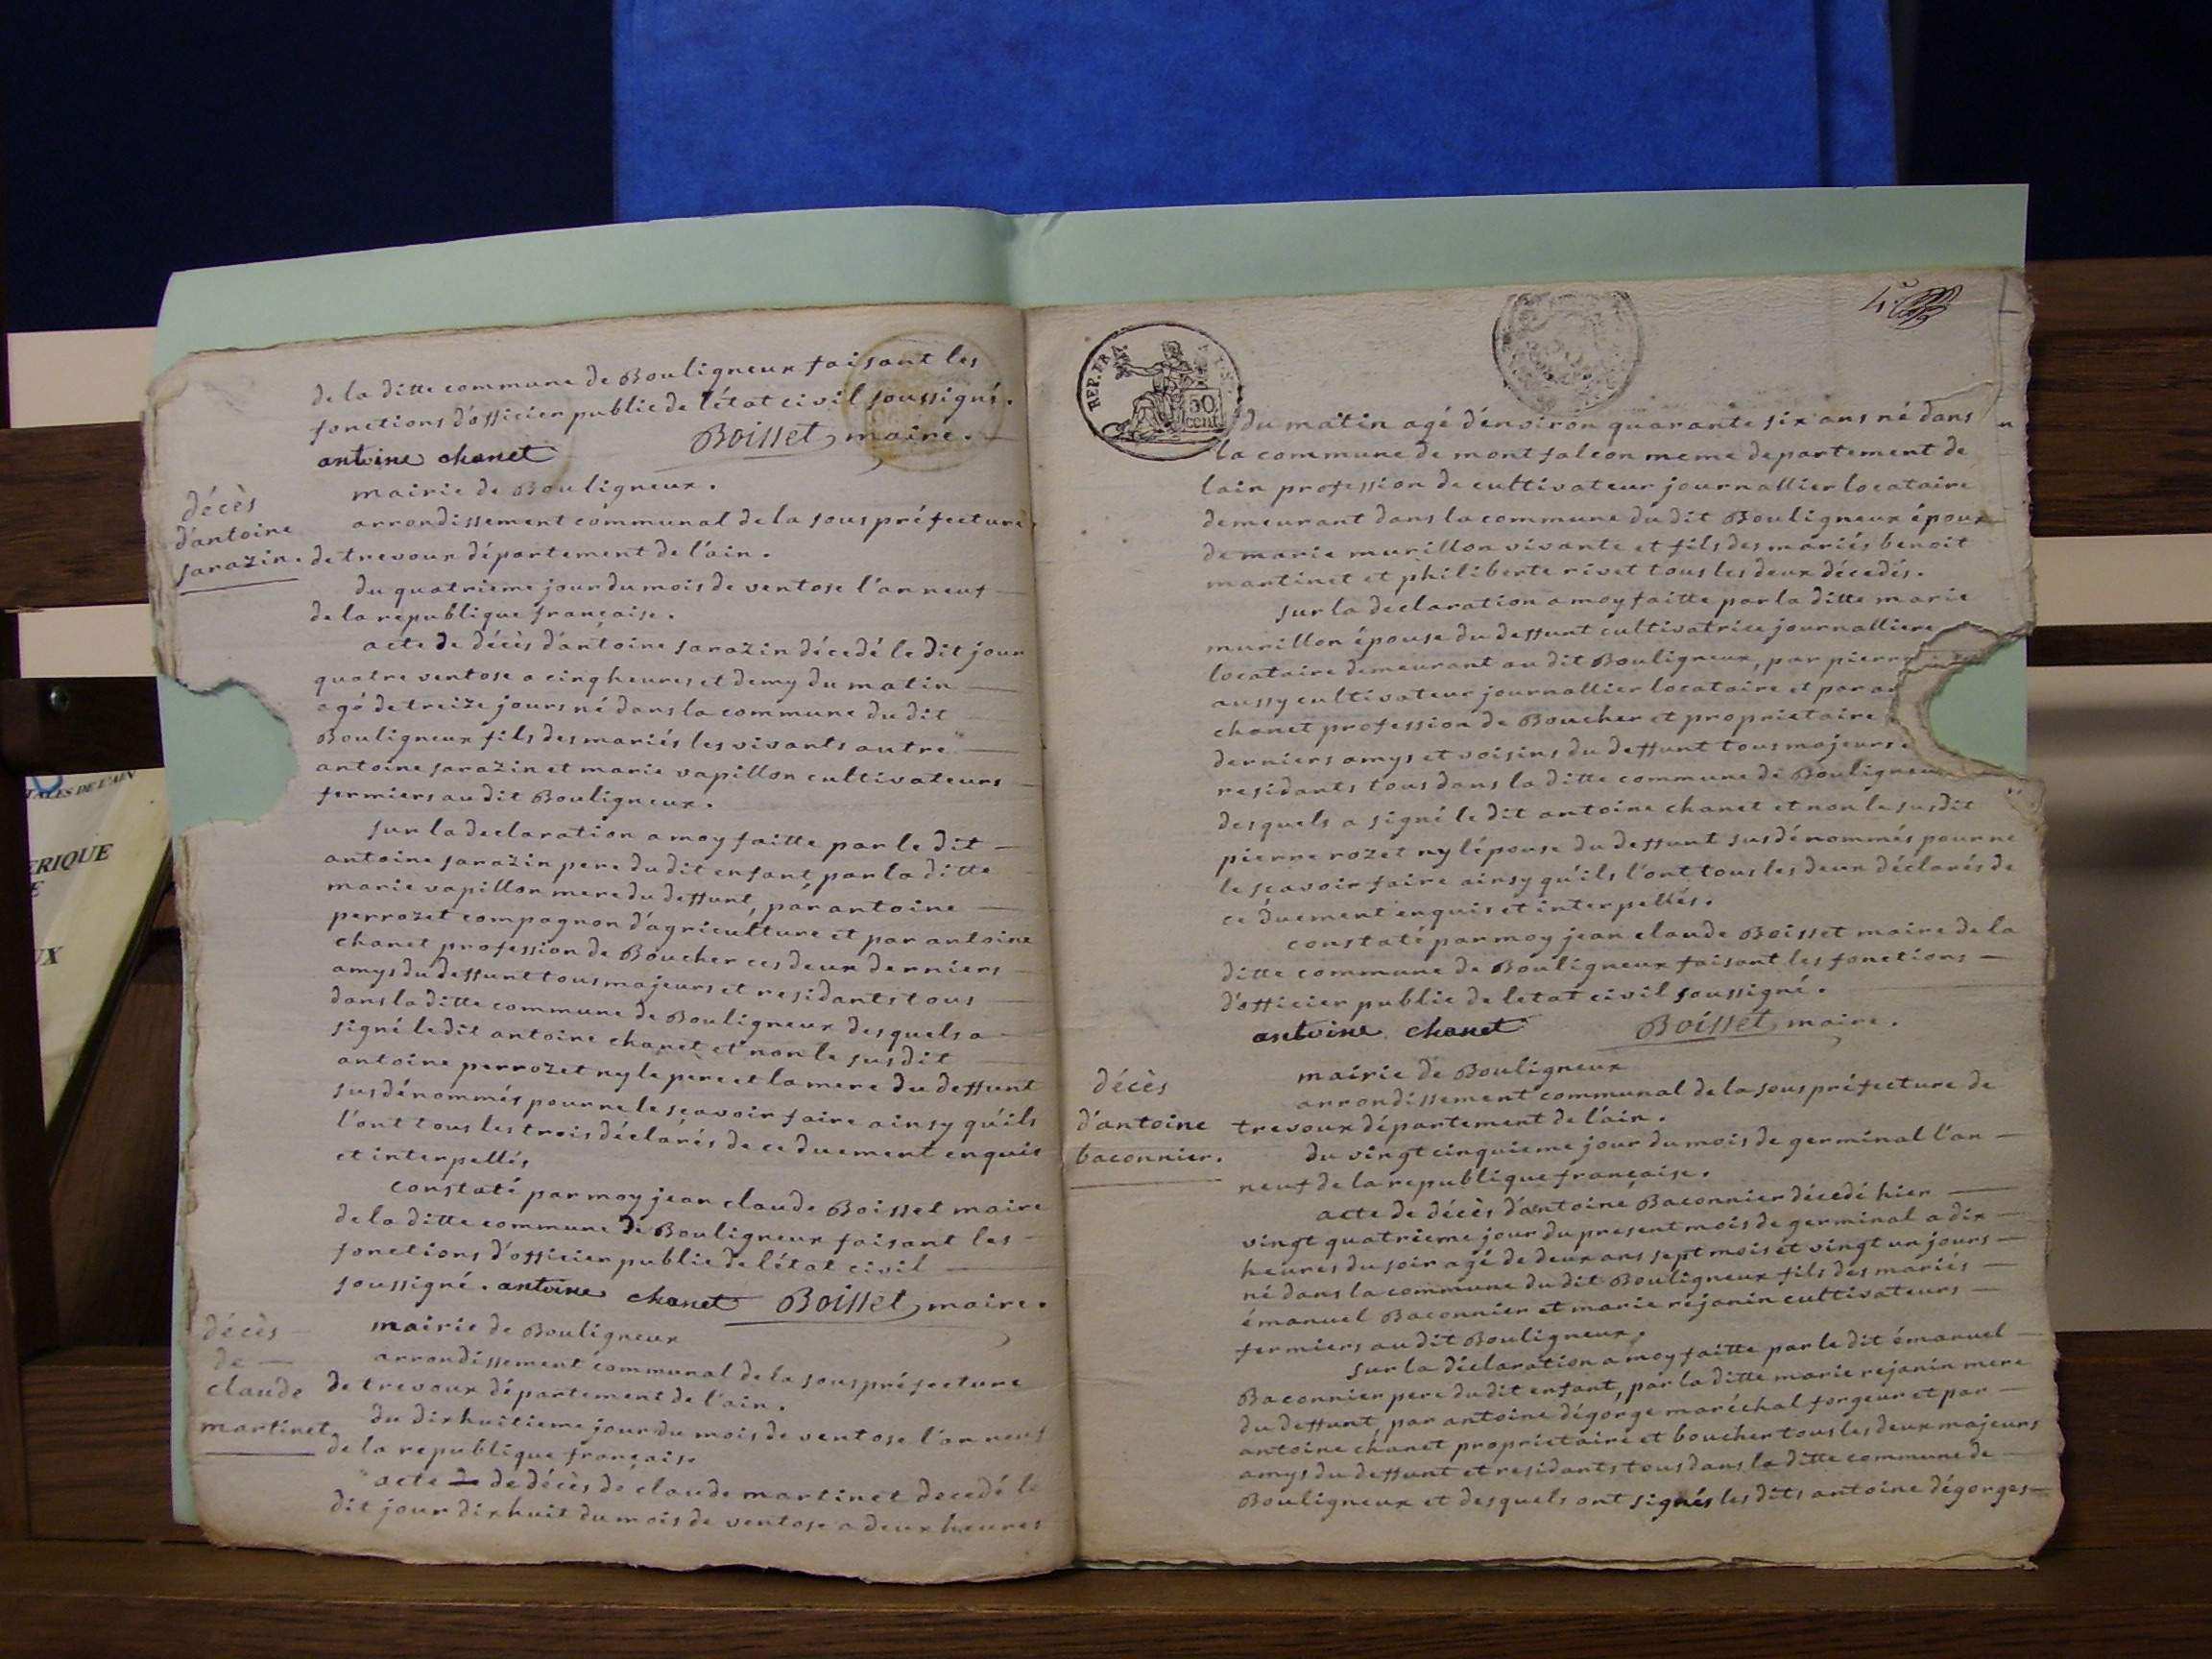 de la ditte commune de Bouligneux faisant les
fonctions d'officier public de l'état civil soussigné.
antoine chanet Boisset, maire.
décès
d'antoine
sarazin.
mairie de Bouligneux.
arrondissement communal de la sous préfecture
de trevoux département de l'ain.
du quatrieme jour du mois de ventose l'an neuf
de la republique française.
acte de décès d'antoine sarazin décedé le dit jour
quatre ventose a cinq heures et demy du matin
agé de treize jours né dans la commune du dit
Bouligneux fils des mariés les vivants autre
antoine sarazin et marie vapillon cultivateurs
fermiers au dit Bouligneux.
sur la declaration a moy faitte par le dit
antoine sarazin pere du dit enfant, par la ditte
marie vapillon mere du deffunt, par antoine
perrozet compagnon d'agriculture et par antoine
chanet profession de Boucher ces deux derniers
amys du deffunt tous majeurs et residants tous
dans la ditte commune de Bouligneux desquels a
signé le dit antoine chanet et non le susdit
antoine perrozet ny le pere et la mere du deffunt
susdénommés pour ne le sçavoir faire ainsy qu'ils
l'ont tous les trois déclarés de ce duement enquis
et interpellés
constaté par moy jean claude Boisset maire
de la ditte commune de Bouligneux faisant les
fonctions d'officier public de l'état civil
soussigné. antoine chanet Boisset, maire.
décès
de
claude
martinet
mairie de Bouligneux
arrondissement communal de la sous préfecture
de trevoux département de l'ain.
du dixhuitieme jour du mois de ventose l'an neuf
de la republique française
acte de de décès de claude martinet decedé le
dit jour dixhuit du mois de ventose a deux heures
REP. FRA
50
cent
du matin agé d'environ quarante six ans né dans
la commune de montfalcon meme departement de
lain profession de cultivateur journallier locataire
demeurant dans la commune du dit Bouligneux époux
de marie murillon vivante et fils des mariés benoit
martinet et philiberte rivet tous les deux décedés.
sur la declaration a moy faitte par la ditte marie
murillon épouse du deffunt cultivatrice journalliere
locataire demeurant au dit Bouligneux, par pierre
aussy cultivateur journallier locataire et par an
chanet profession de Boucher et proprietaire
derniers amys et voisins du deffunt tous majeurs
residants tous dans la ditte commune de Bouligneux
desquels a signé le dit antoine chanet et non le susdit
pierre rozet ny lépouse du deffunt susdénommés pour ne
le sçavoir faire ainsy qu'ils l'ont tous les deux déclarés de
ce duement enquis et interpellés.
constaté par moy jean claude Boisset maire de la
ditte commune de Bouligneux faisant les fonctions
d'officier public de letat civil soussigné.
antoine chanet Boisset, maire.
décès
d'antoine
baconnier.
mairie de Bouligneux
arrondissement communal de la sous préfecture de
trevoux département de l'ain.
du vingt cinquieme jour du mois de germinal l'an
neuf de la republique française.
acte de décès d'antoine Baconnier décedé hier
vingt quatrieme jour du present mois de germinal a dix
heures du soir agé de deux ans sept mois et vingt un jours
né dans la commune du dit Bouligneux fils des mariés
émanuel Baconnier et marie rejanin cultivateurs
fermiers au dit Bouligneux.
sur la déclaration a moy faitte par le dit émanuel
Baconnier pere du dit enfant, par la ditte marie rejanin mere
du deffunt, par antoine dégorge maréchal forgeur et par
antoine chanet proprietaire et boucher tous les deux majeurs
amys du deffunt et residants tous dans la ditte commune de
Bouligneux et desquels ont signés les dits antoine dégorges
ALES DE L'AIN
ERIQUE
E
UX